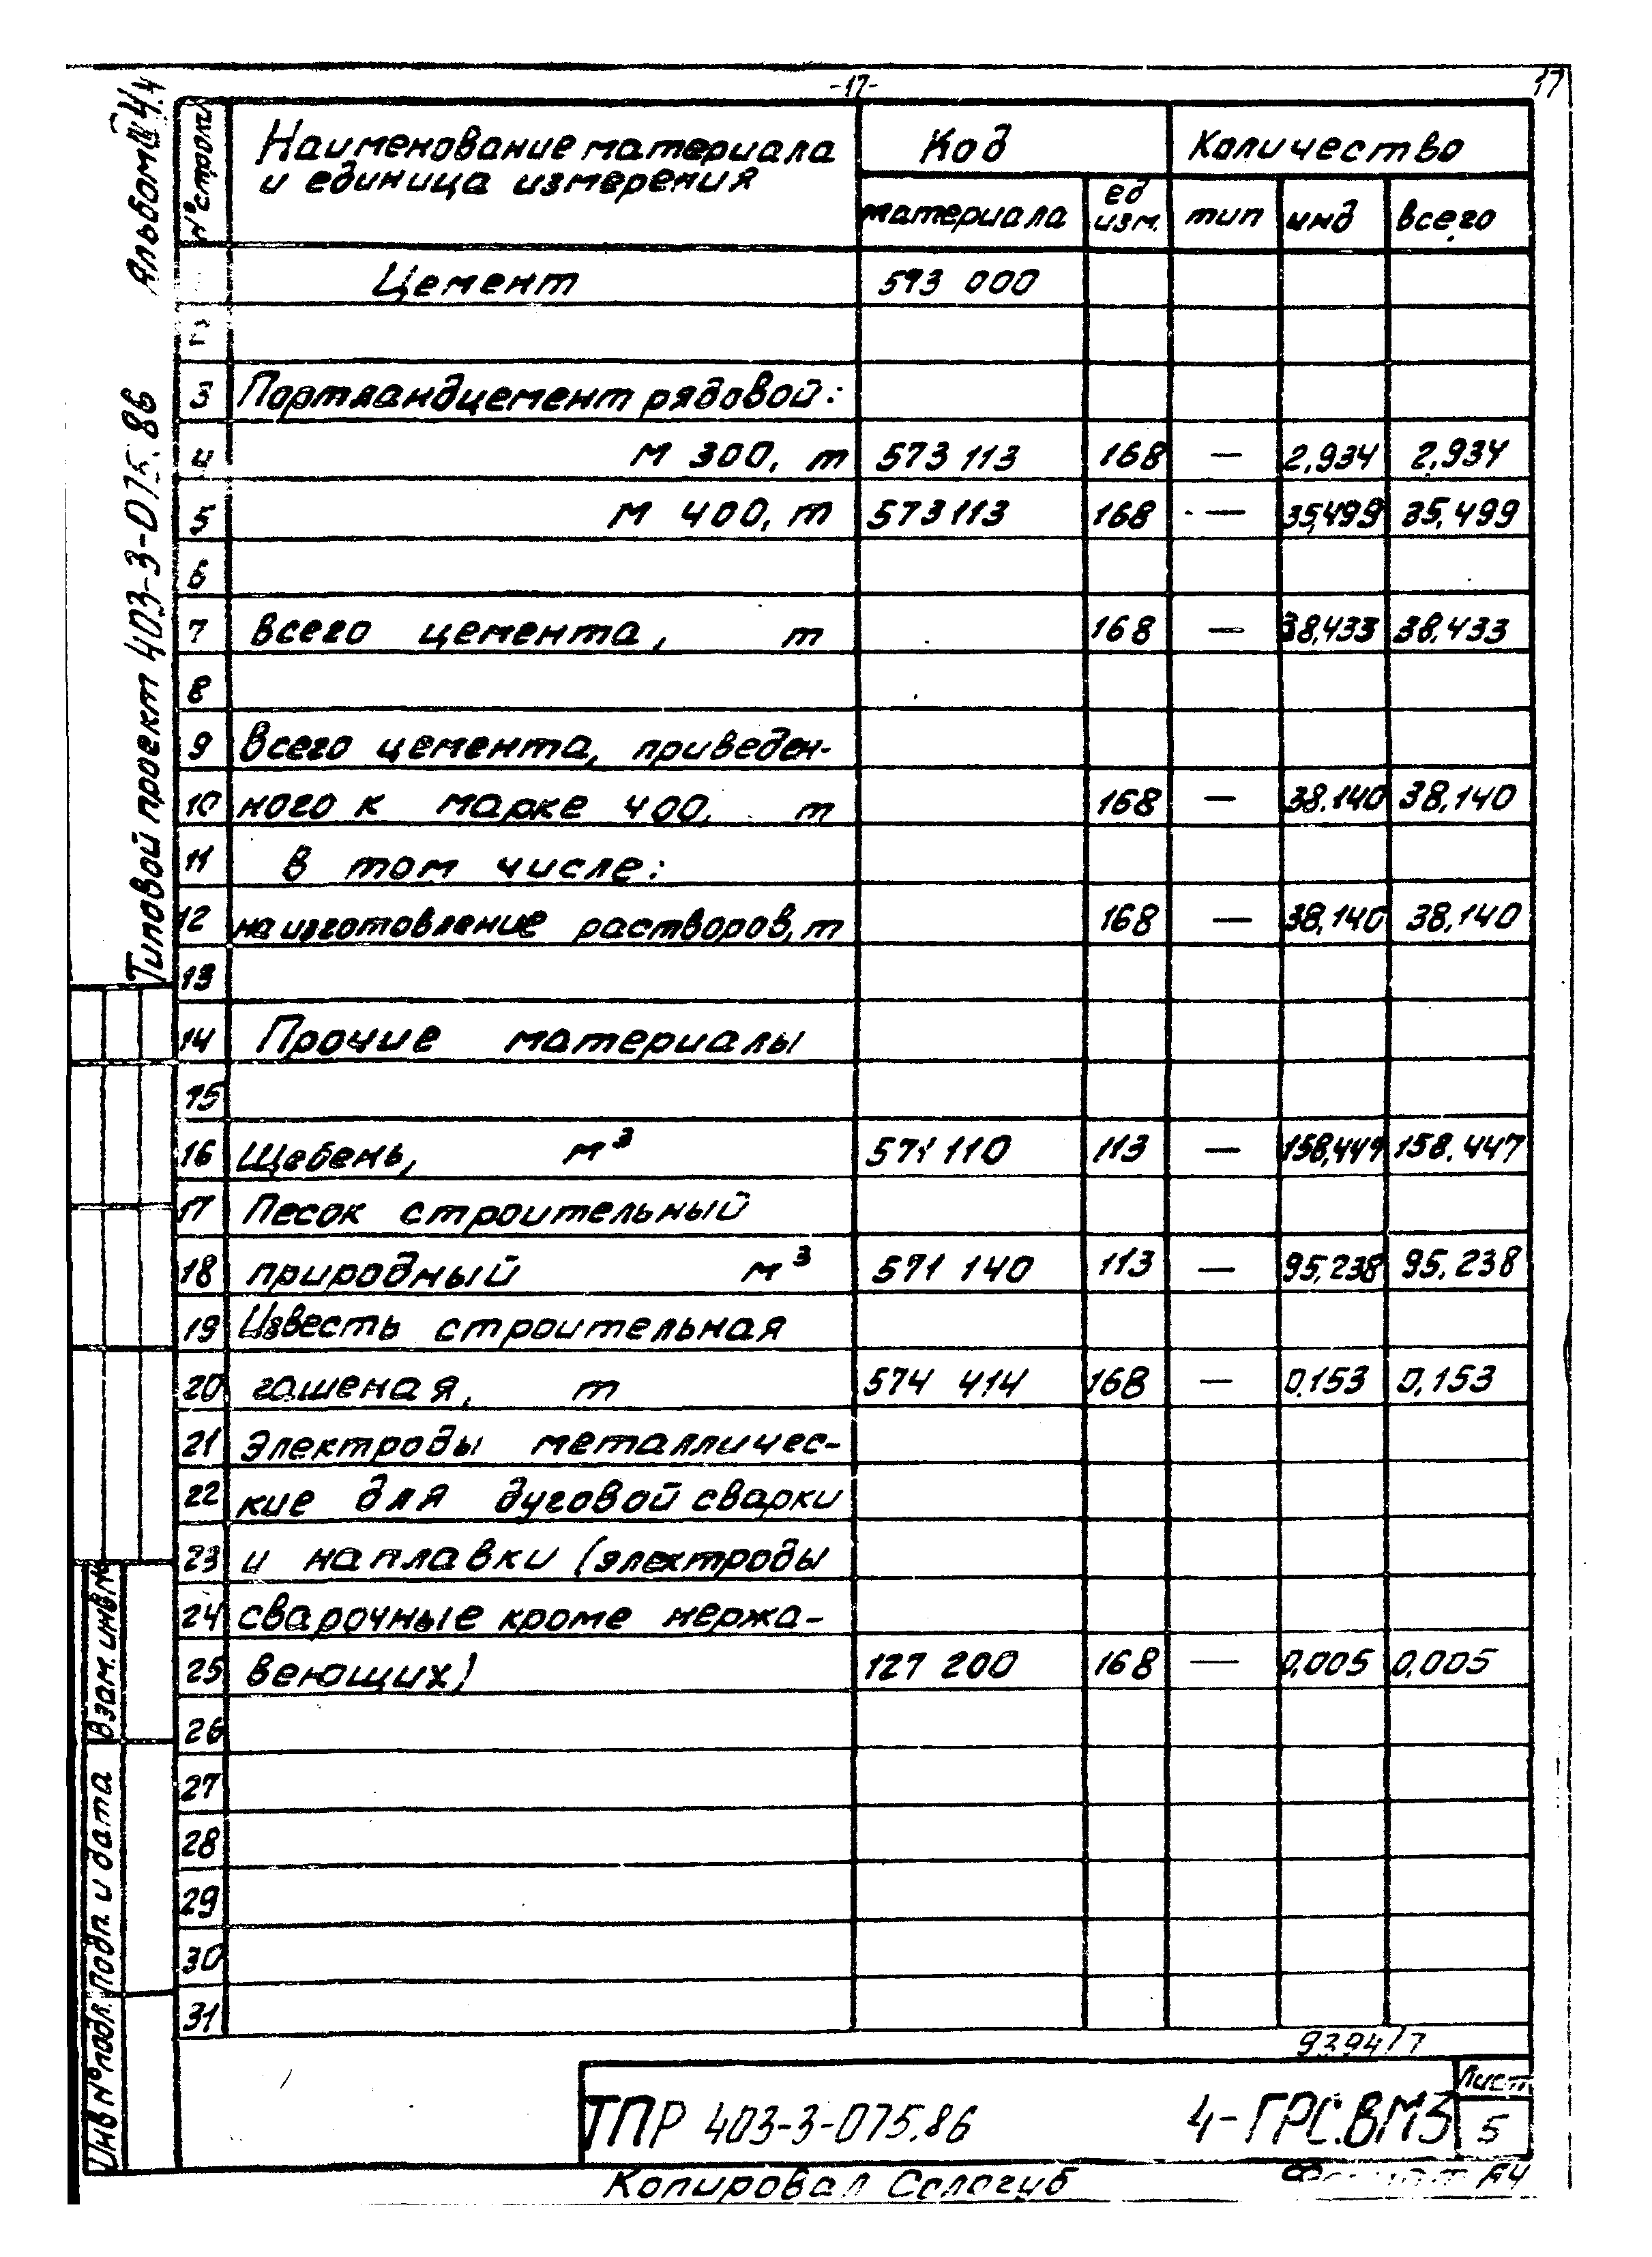 -17-
17
Альбом 4.4
Типовой проект 403-3-075.86
№ строк
Наименование материала
и единица измерения
Код
Количество
материала
ед
изм.
тип
инд
всего
Цемент 593 000
3 Портландцемент рядовой:
4 М 300, т 573 113 168 — 2,934 2,934
5 М 400, т 573113 168 — 35,499 35,499
6
7 Всего цемента, т 168 — 38,433 38,433
8
9 Всего цемента, приведен-
10 ного к марке 400, т 168 — 38.140 38,140
11 В том числе:
12 на изготовление растворов, т 168 — 38,140 38,140
13
14 Прочие материалы
15
16 Щебень, м³ 571 110 113 — 158,447 158.447
17 Песок строительный
18 природный м³ 571 140 113 — 95,238 95,238
19 Известь строительная
20 гашеная, т 574 414 168 — 0,153 0,153
21 Электроды металличес-
22 кие для дуговой сварки
23 и наплавки (электроды
24 сварочные кроме нержа-
25 веющих) 127 200 168 — 0,005 0,005
26
27
28
29
30
31
Взам. инв №
Подп. и дата
Инв № подл.
9394/7
ТПР 403-3-075.86 4-ГРС.ВМ3
Лист
5
Копировал Сологуб
Формат А4